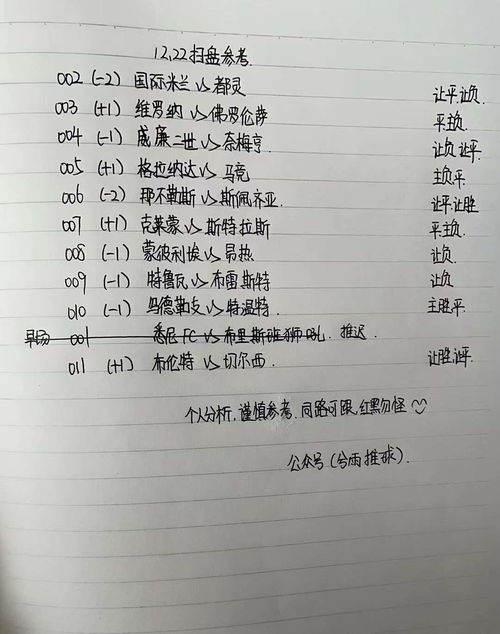 12,22扫盘参考.
002 (-2) 国际米兰 vs 都灵 让平.让负
003 (+1) 维罗纳 vs 佛罗伦萨 平.主负
004 (-1) 威廉二世 vs 奈梅亨. 让负 让平
005 (+1) 格拉纳达 vs 马竞 主负.平
006 (-2) 那不勒斯 vs 斯佩齐亚. 让平.让胜
007 (+1) 克莱蒙 vs 斯特拉斯 平.主负.
008 (-1) 蒙彼利埃 vs 昂热 让负.
009 (-1) 特鲁瓦 vs 布雷斯特 让负
010 (-1) 乌德勒支 vs 特温特 主胜.平.
早场 001 悉尼FC vs 布里斯班狮吼. 推迟.
011 (+1) 布伦特 vs 切尔西. 让胜.让平.
个人分析,谨慎参考.同路可跟,红黑勿怪
公众号(兮雨推球).